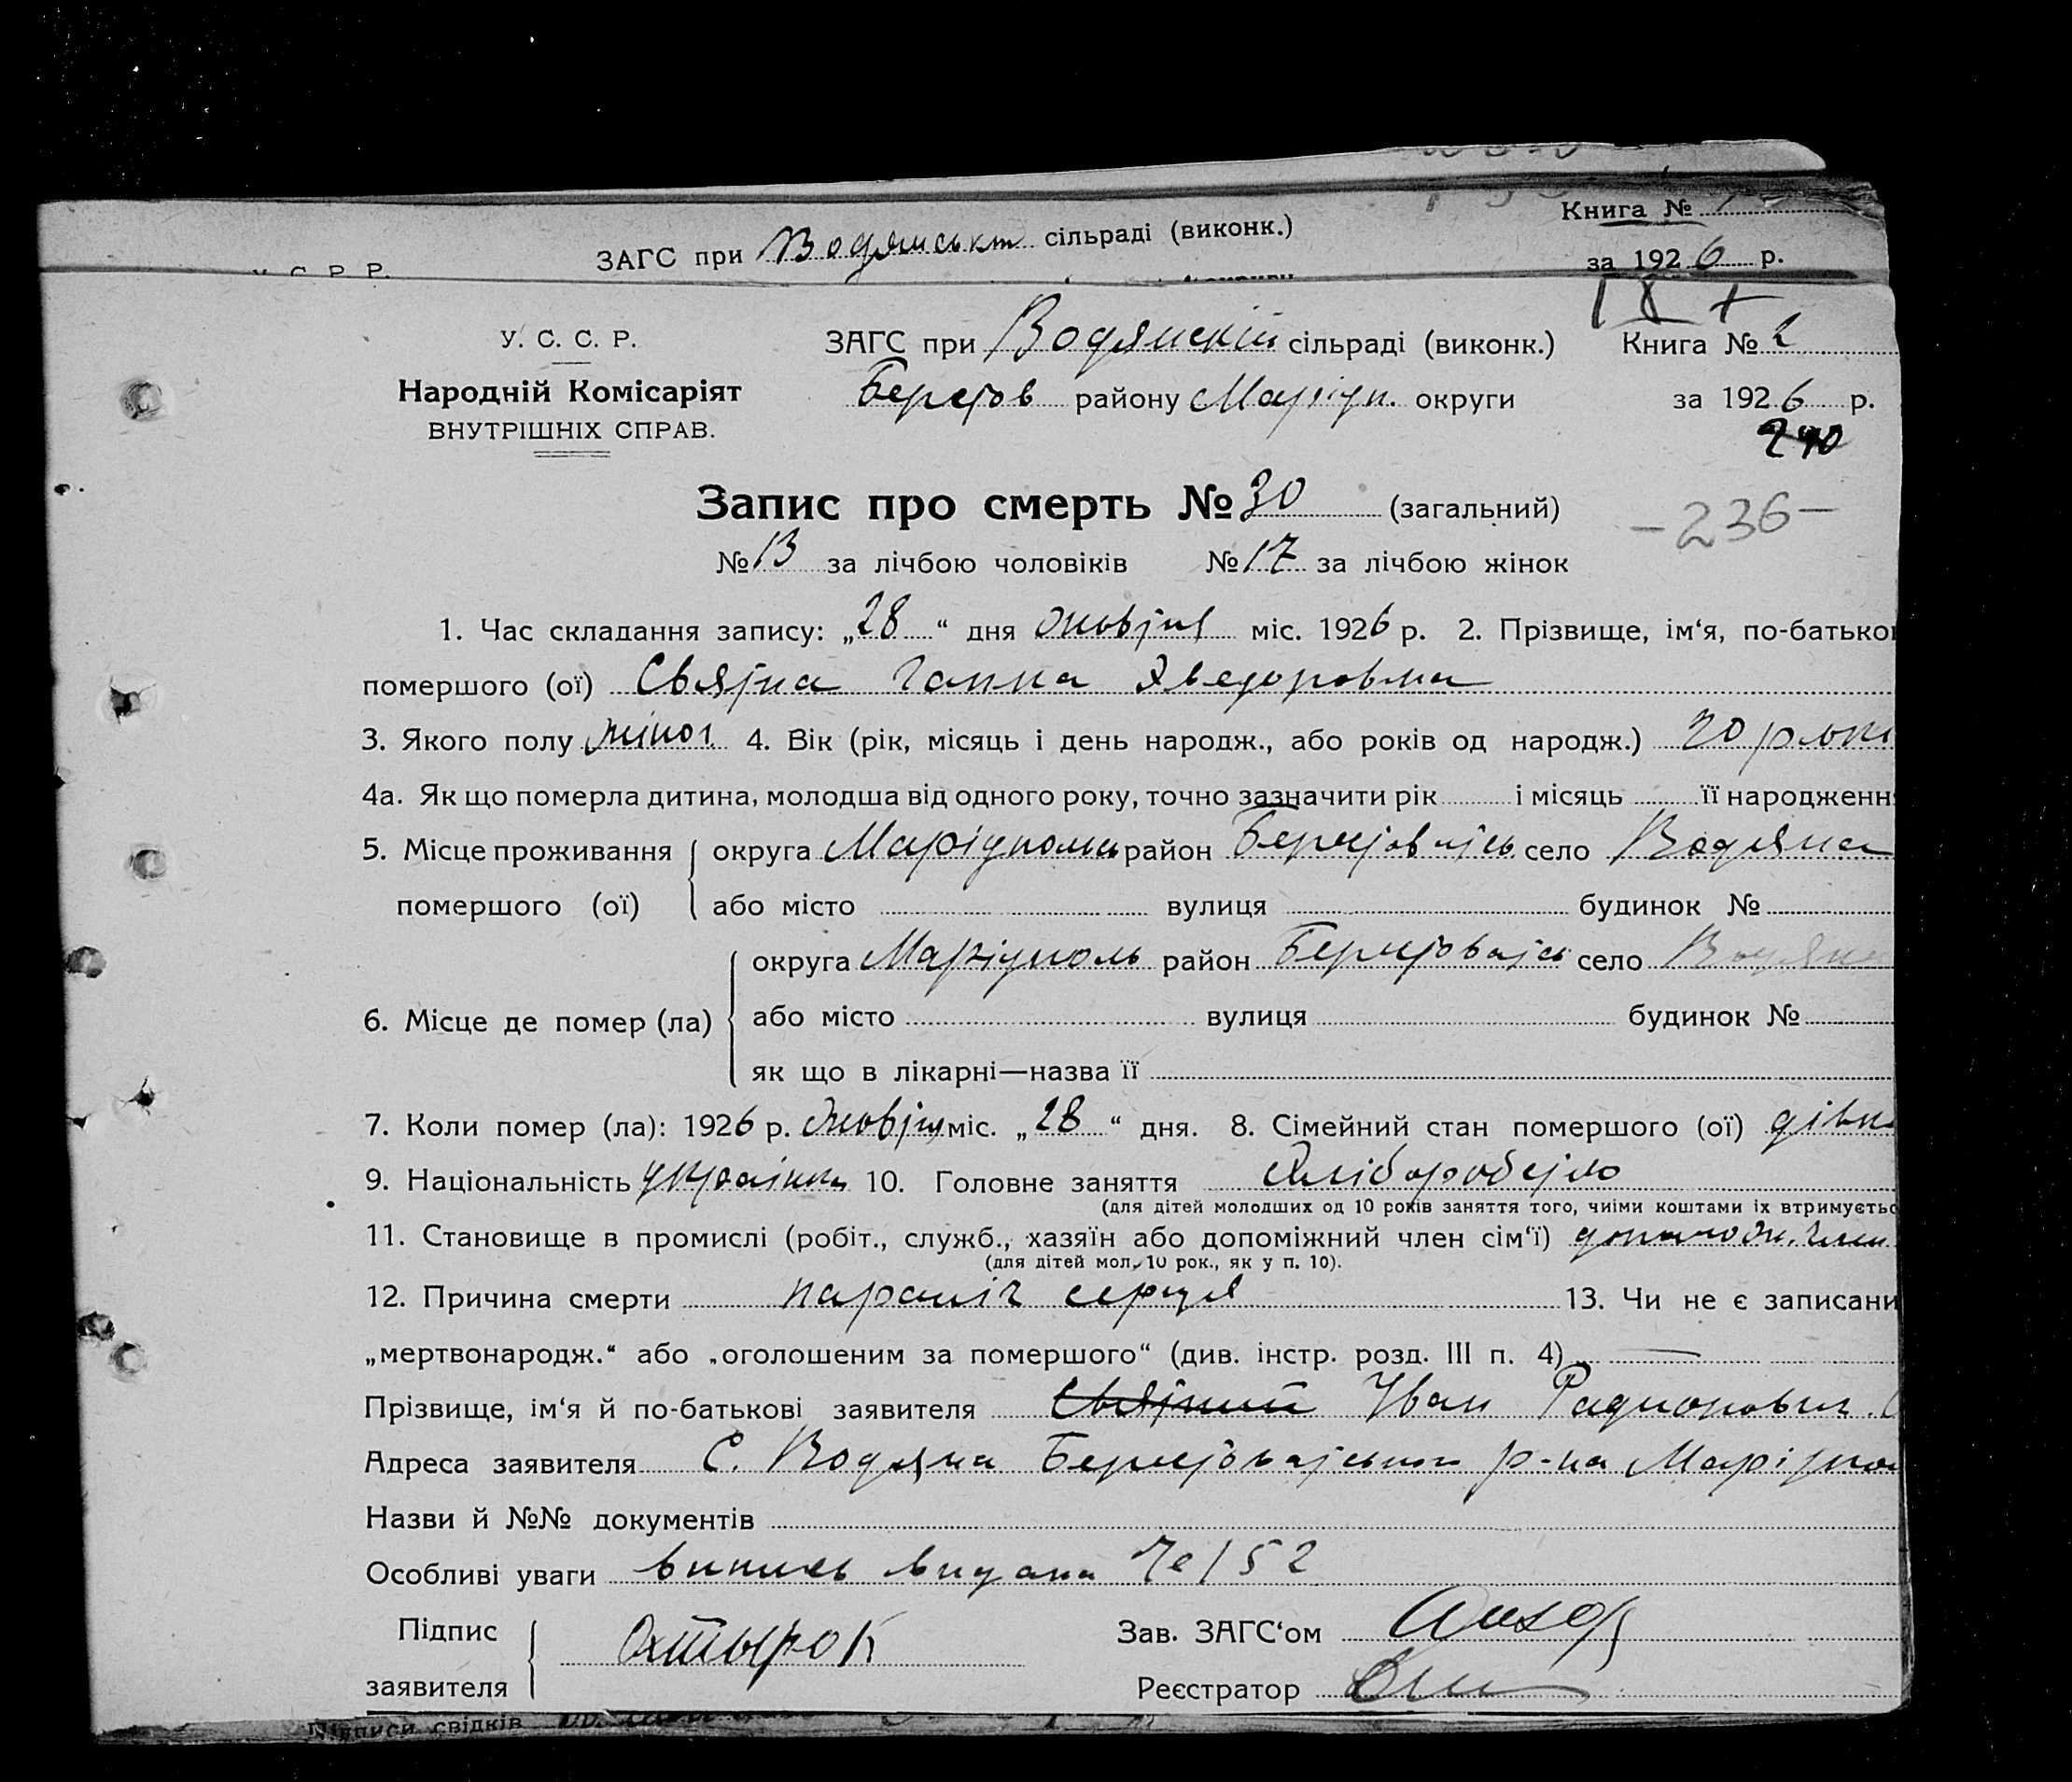 ЗАГС при Водянськт сільраді (виконк.) Книга №
за 1926 р.
18 +
У. С. С. Р. ЗАГС при Водянскій сільраді (виконк.) Книга № 2
Народній Комісаріят Берестов району Маріуп. округи за 1926 р.
ВНУТРІШНІХ СПРАВ. 240
Запис про смерть № 30 (загальний) -236-
№ 13 за лічбою чоловіків № 17 за лічбою жінок
1. Час складання запису: „28“ дня жовтня міс. 1926 р. 2. Прізвище, ім‘я, по-батько
помершого (ої) Святна Ганна Хведоровна
3. Якого полу жіноч. 4. Вік (рік, місяць і день народж., або років од народж.) 20 рокі
4а. Як що померла дитина, молодша від одного року, точно зазначити рік і місяць її народженн
5. Місце проживання округа Маріупольсь район Берестоватсь село Водяна
помершого (ої) або місто вулиця будинок №
округа Маріуполь район Берестоватсь село Водяна
6. Місце де помер (ла) або місто вулиця будинок №
як що в лікарні—назва її
7. Коли помер (ла): 1926 р. жовтня міс. „28“ дня. 8. Сімейний стан помершого (ої) дівк
9. Національність українк 10. Головне заняття Хліборобство
(для дітей молодших од 10 років заняття того, чиїми коштами їх втримуєтьс
11. Становище в промислі (робіт., служб., хазяїн або допоміжний член сім‘ї) член
(для дітей мол. 10 рок., як у п. 10).
12. Причина смерти параліч серця 13. Чи не є записани
„мертвонародж.“ або „оголошеним за помершого“ (див. інстр. розд. III п. 4) —
Прізвище, ім‘я й по-батькові заявителя Святний Іван Радионович
Адреса заявителя С. Водяна Берестоватського р-на Маріупол
Назви й №№ документів
Особливі уваги випись видана № 152
Підпис Охтырок Зав. ЗАГС‘ом
заявителя Реєстратор
Підписи свідків